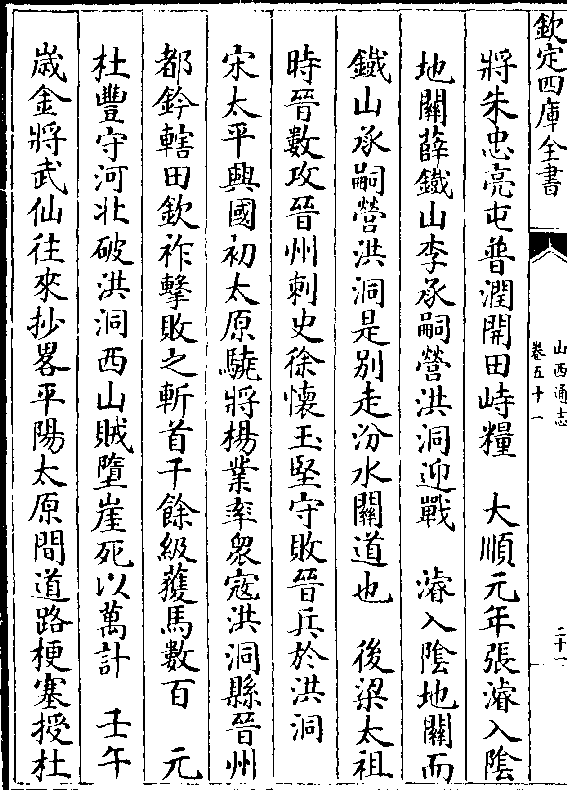 欽定四庫全書
山西通志
卷五十一
二十一
將朱忠亮屯普潤開田峙糧　大順元年張濬入陰
地關薛鐵山李承嗣營洪洞迎戰　濬入陰地關而
鐵山承嗣營洪洞是别走汾水關道也　後梁太祖
時晉數攻晉州刺史徐懷玉堅守敗晉兵於洪洞
宋太平興國初太原驍將楊業率衆寇洪洞縣晉州
都鈐轄田欽祚擊敗之斬首千餘級獲馬數百　元
杜豐守河北破洪洞西山賊墮崖死以萬計　壬午
嵗金將武仙往來抄畧平陽太原間道路梗塞授杜